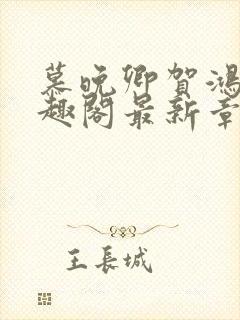 慕晚卿贺鸿
趣阁最新章
王長城